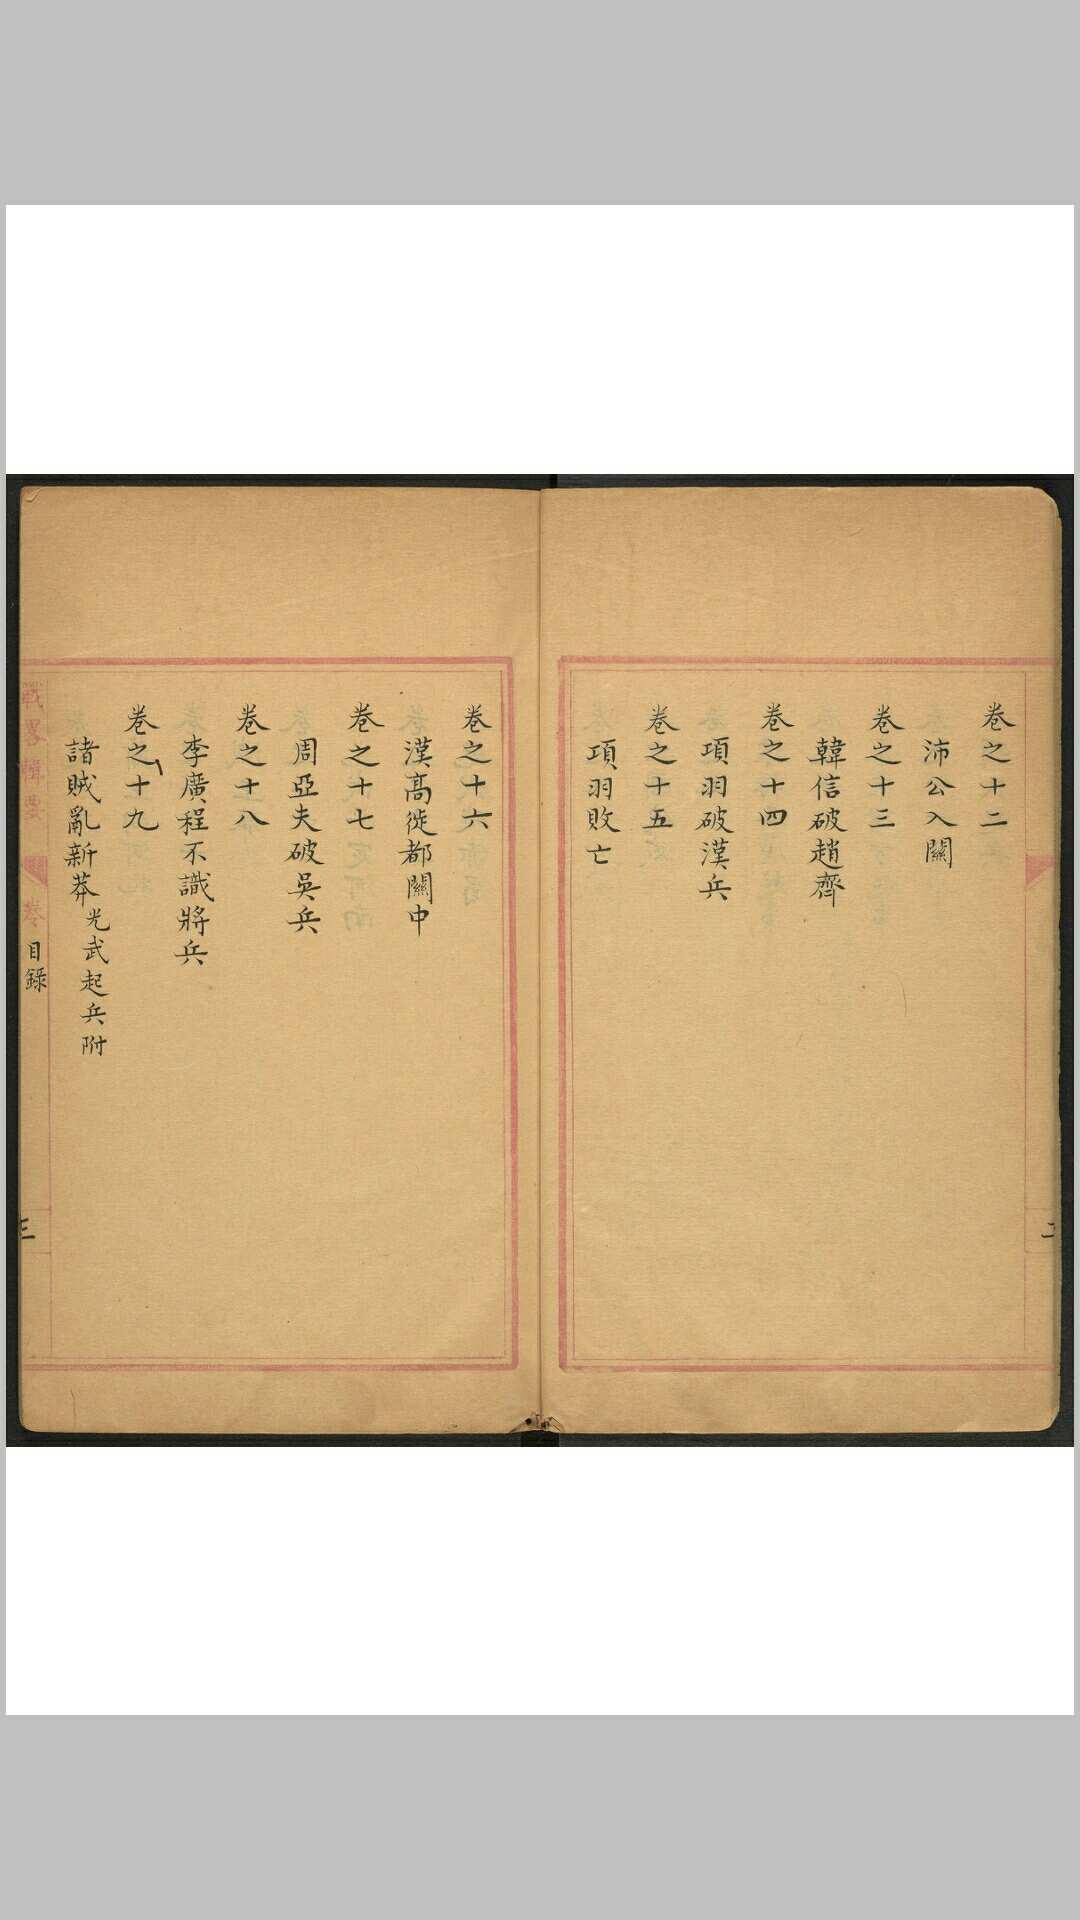 卷之十二
沛公入關
卷之十三
韓信破趙齊
卷之十四
項羽破漢兵
卷之十五
項羽敗亡
二
卷之十六
漢高徙都關中
卷之十七
周亞夫破吳兵
卷之十八
李廣程不識將兵
卷之十九
諸賊亂新莽光武起兵附
戰畧輯要 卷 目錄
三